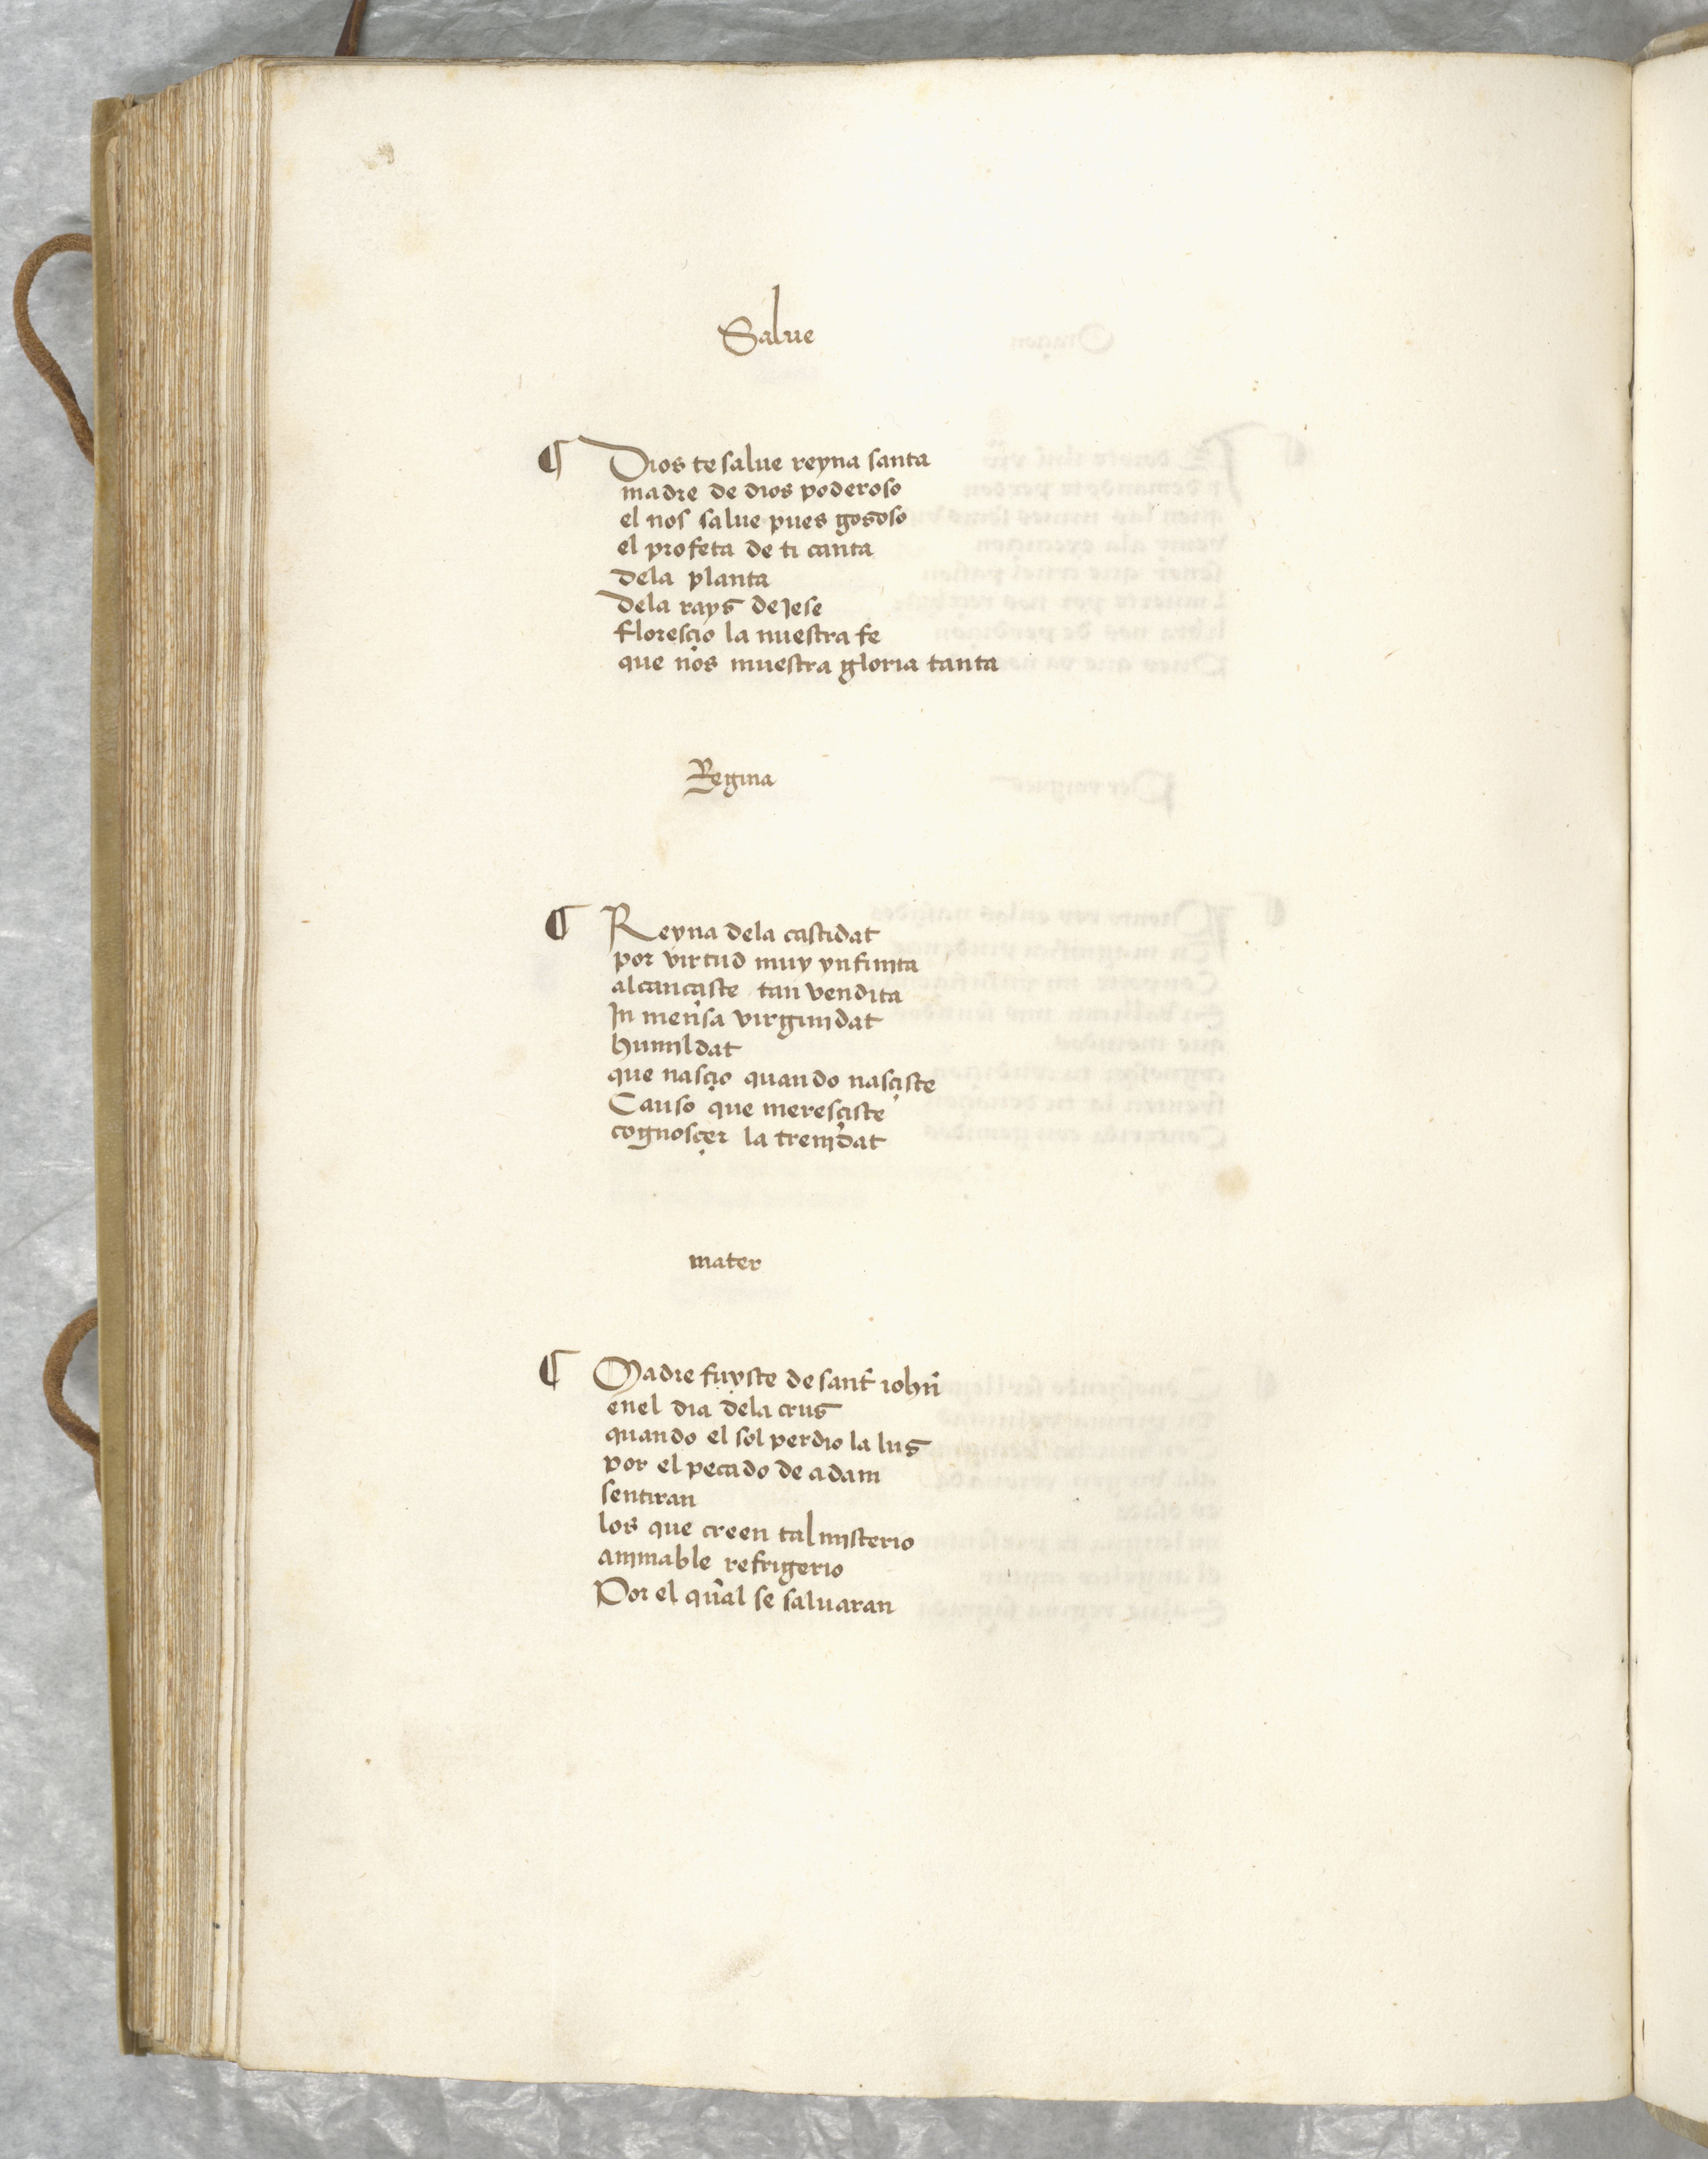 Salue
¶ Dios te salue reyna santa
madre de dios poderoso
el nos salue pues gososo
el profeta de ti canta
dela planta
dela rays de Jese
floresçio la nuestra fe
que nos muestra gloria tanta
Regina
¶ Reyna dela castidat
por virtud muy ynfinita
alcançaste tan vendita
In mensa virginidat
humildat
que nasçio quando nasçiste
Causo que meresçiste
cognosçer la trenidat
mater
¶ Madre fuyste de sant iohñ
enel dia dela crus
quando el sol perdio la lus
por el pecado de adam
sentiran
los que creen tal misterio
amjnable refrigerio
Por el qual se saluaran